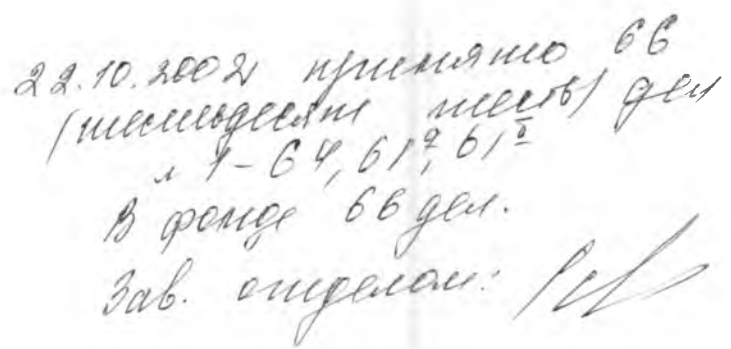 22.10.2002г принято 66
(шестьдесят шесть) дел
№ 1-64, 61а, 61б
В фонде 66 дел.
Зав. отделом: